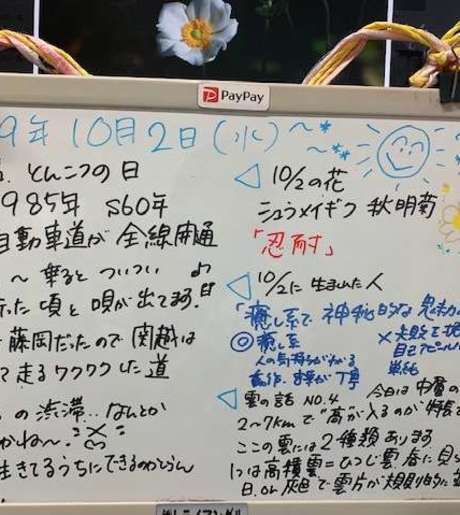 PayPay
9年10月2日(水)～
とんこつの日
985年 S60年
自動車道が 全線開通
～乗ると ついつい ♪
った頃と 唄が出てます。
藤岡だったので 関越は
て走るワクワクした道
の渋滞.. なんとか
かね～。
生きてるうちにできるのかしらん
◁ 10/2の花
シュウメイギク 秋明菊
「忍耐」
◁ 10/2に生まれた人
「癒し系で 神秘的な 魅力
◎癒し系
人の気持ちがわかる
動作、言葉が丁寧
×失敗を
自己アピール
単純
◁ 雲の話 NO.4 今日は中層の
2～7kmで"高"が入るのが特長
ここの雲には2種類あります
1つは高積雲=ひつじ雲 春に
白、or 灰色で雲片が規則的に並